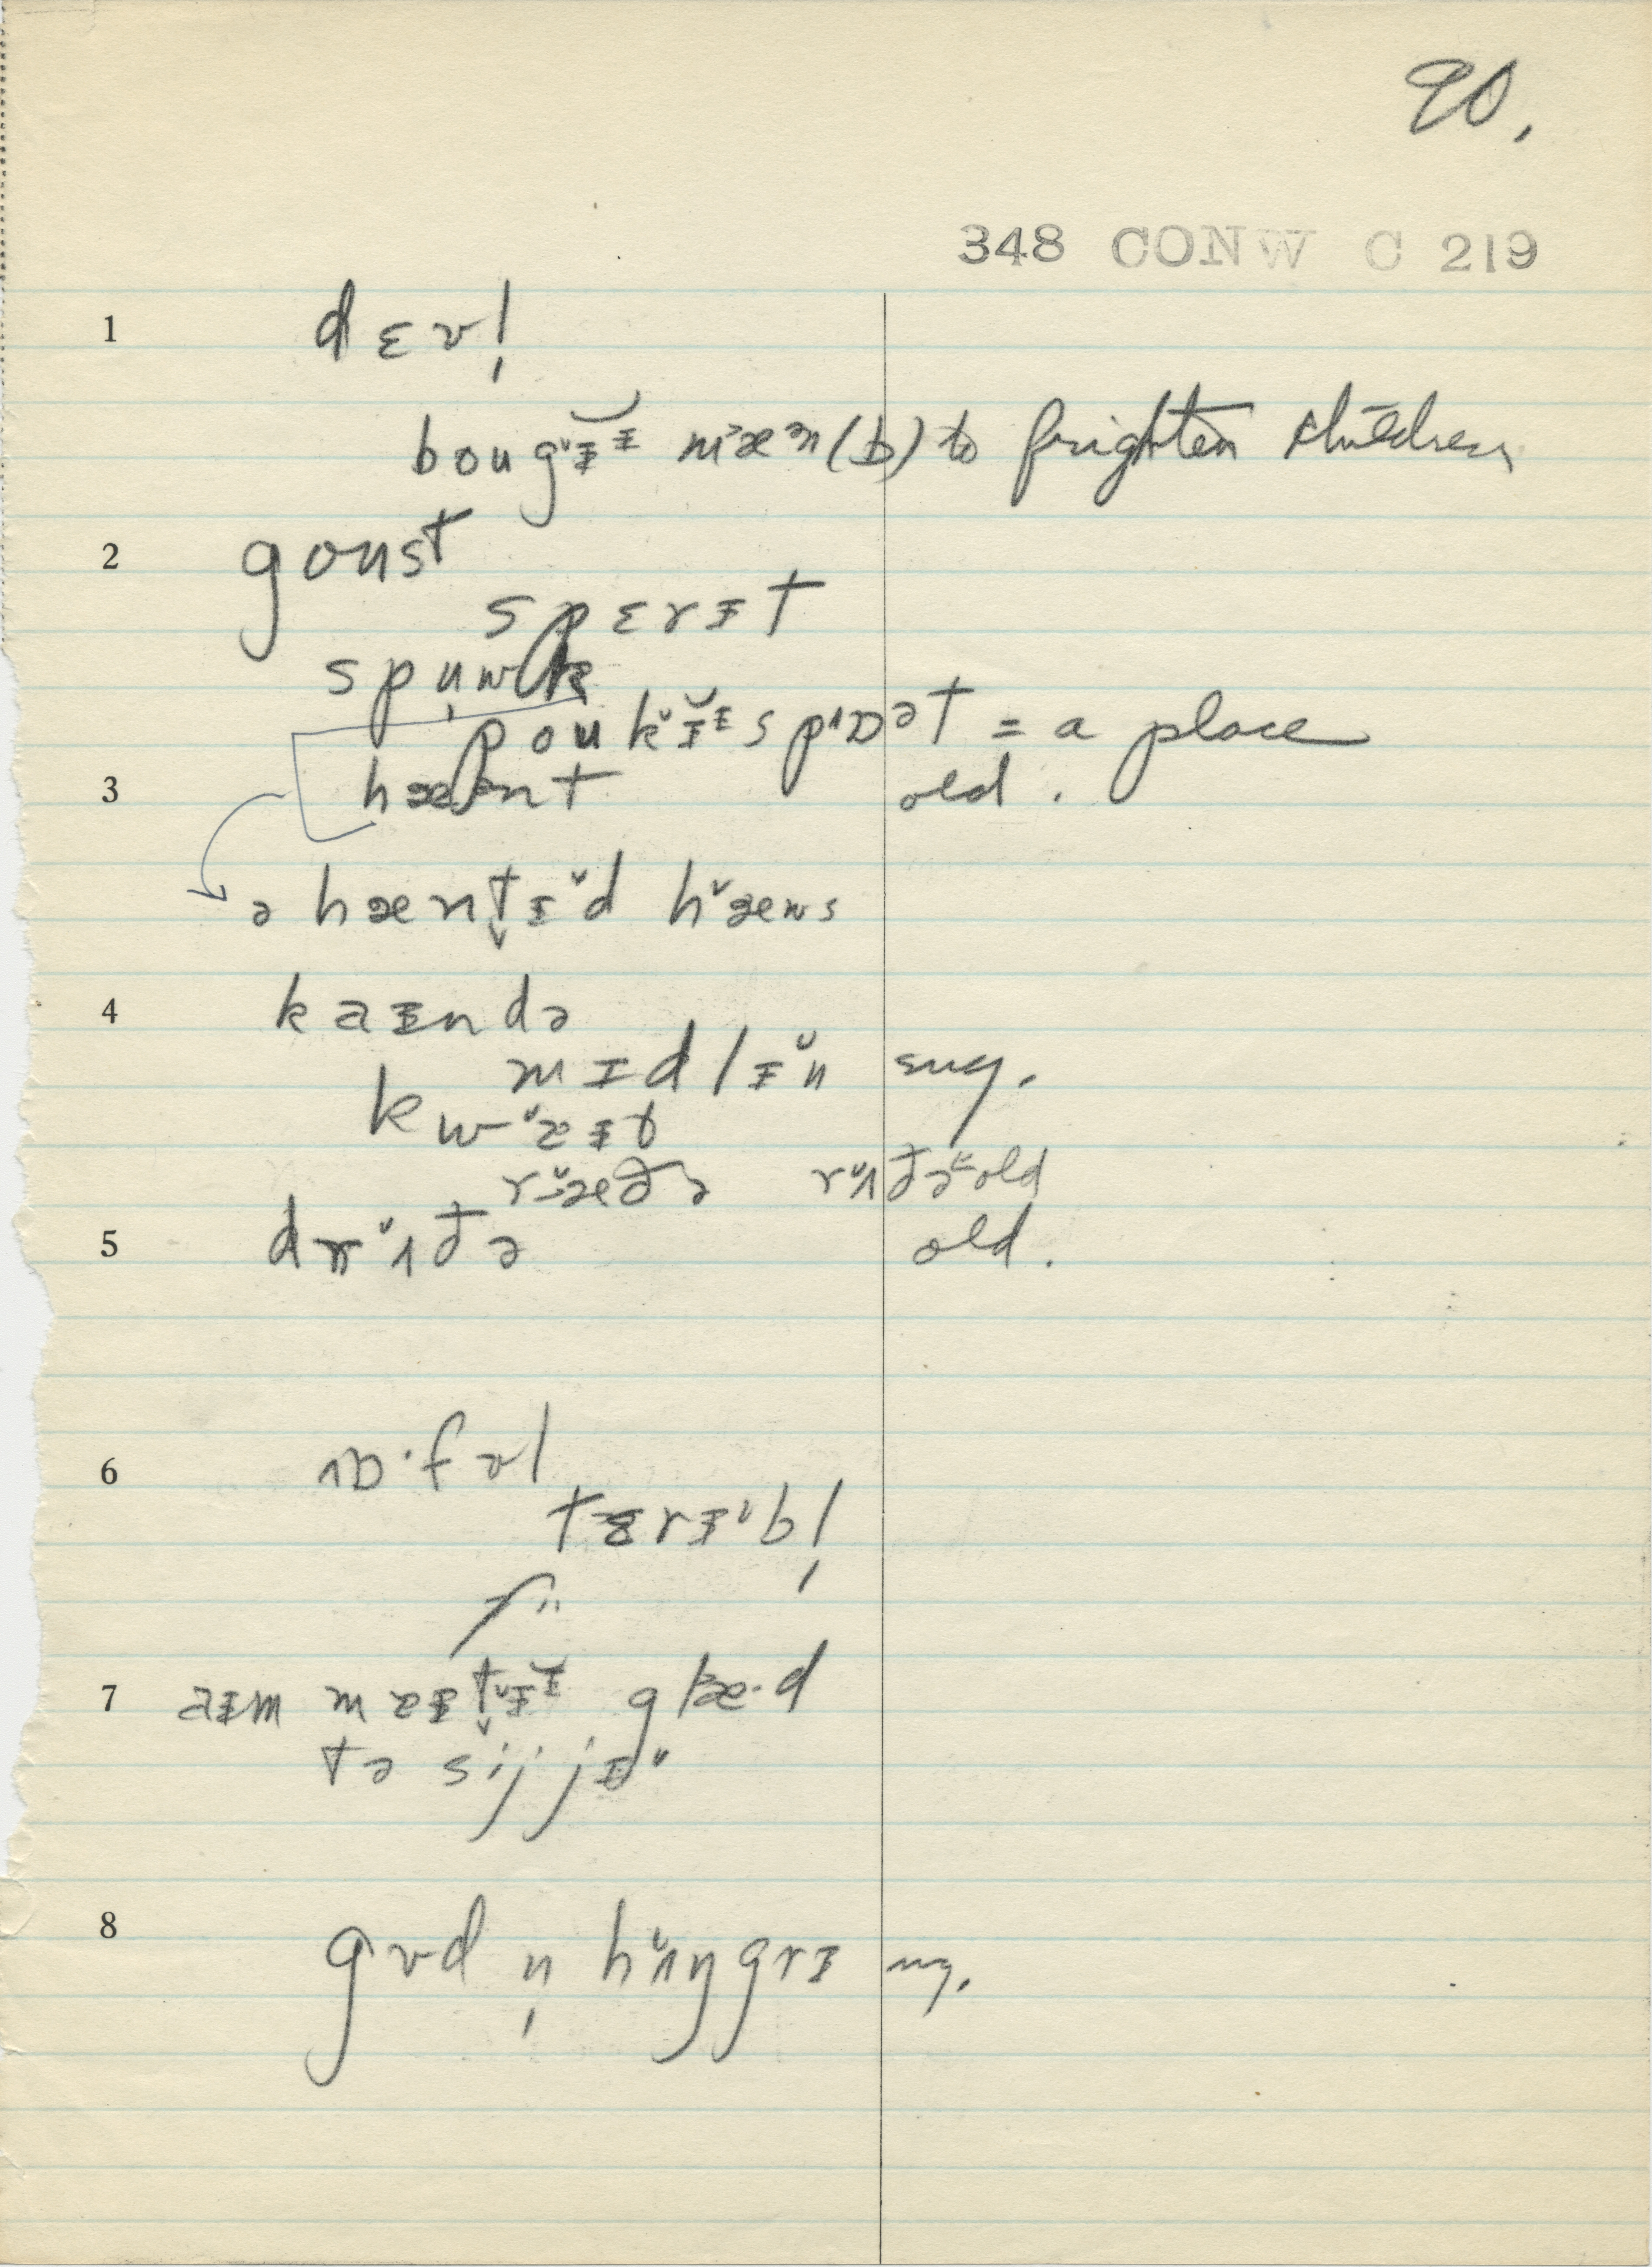 90.
348 CONW C 219
1 dɛvl̩
bougɪ̆ɪ mæən (b) to frighten children
2 goust
spɛrɪt
spuwk
poukɪ̆ɪ spɒət = a place
3 hænt old.
ə hæntɪd hæus
4 kaɪndə
mɪdlɪn sug.
kwaɪt
ræðə rʌðə = old
5 drʌðə old.
6 ɒ·fəl
tɛrɪbl̩
7 aɪm meɪtɪ̆ɪ glæ·d
tə sij jɪu
8 gud n̩ hʌŋgrɪ ng.